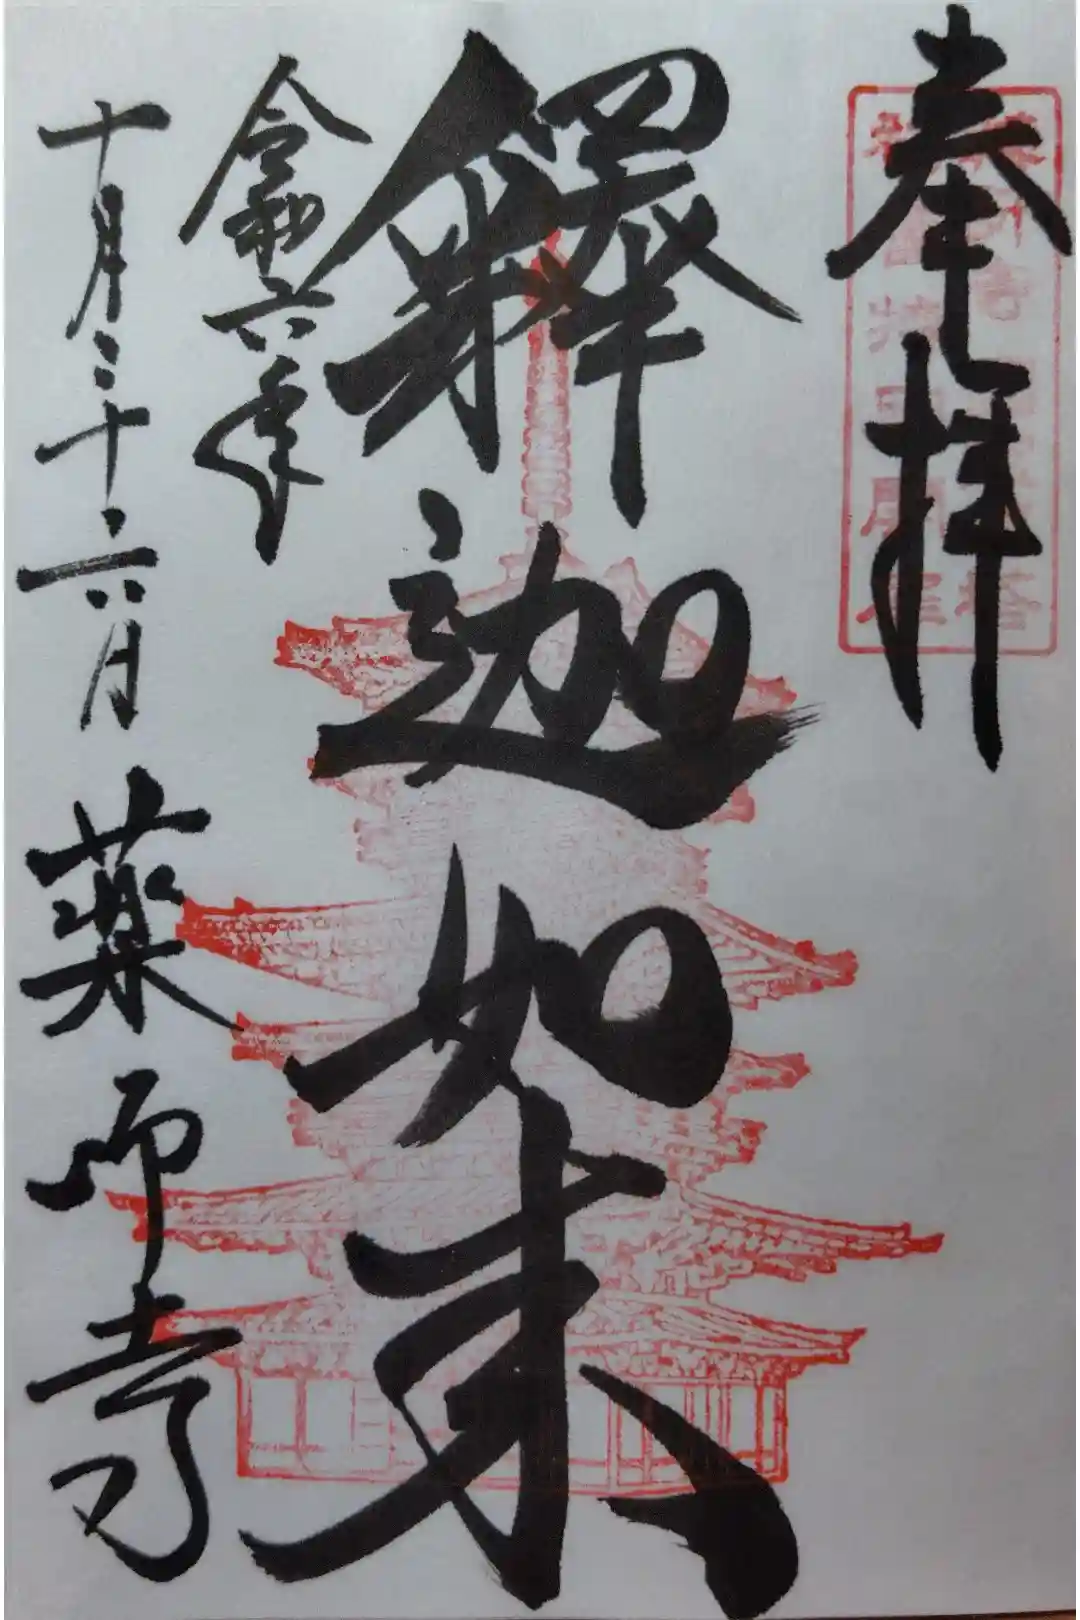 奉拝
釋迦如来
令和六年
十月二十六日 薬師寺